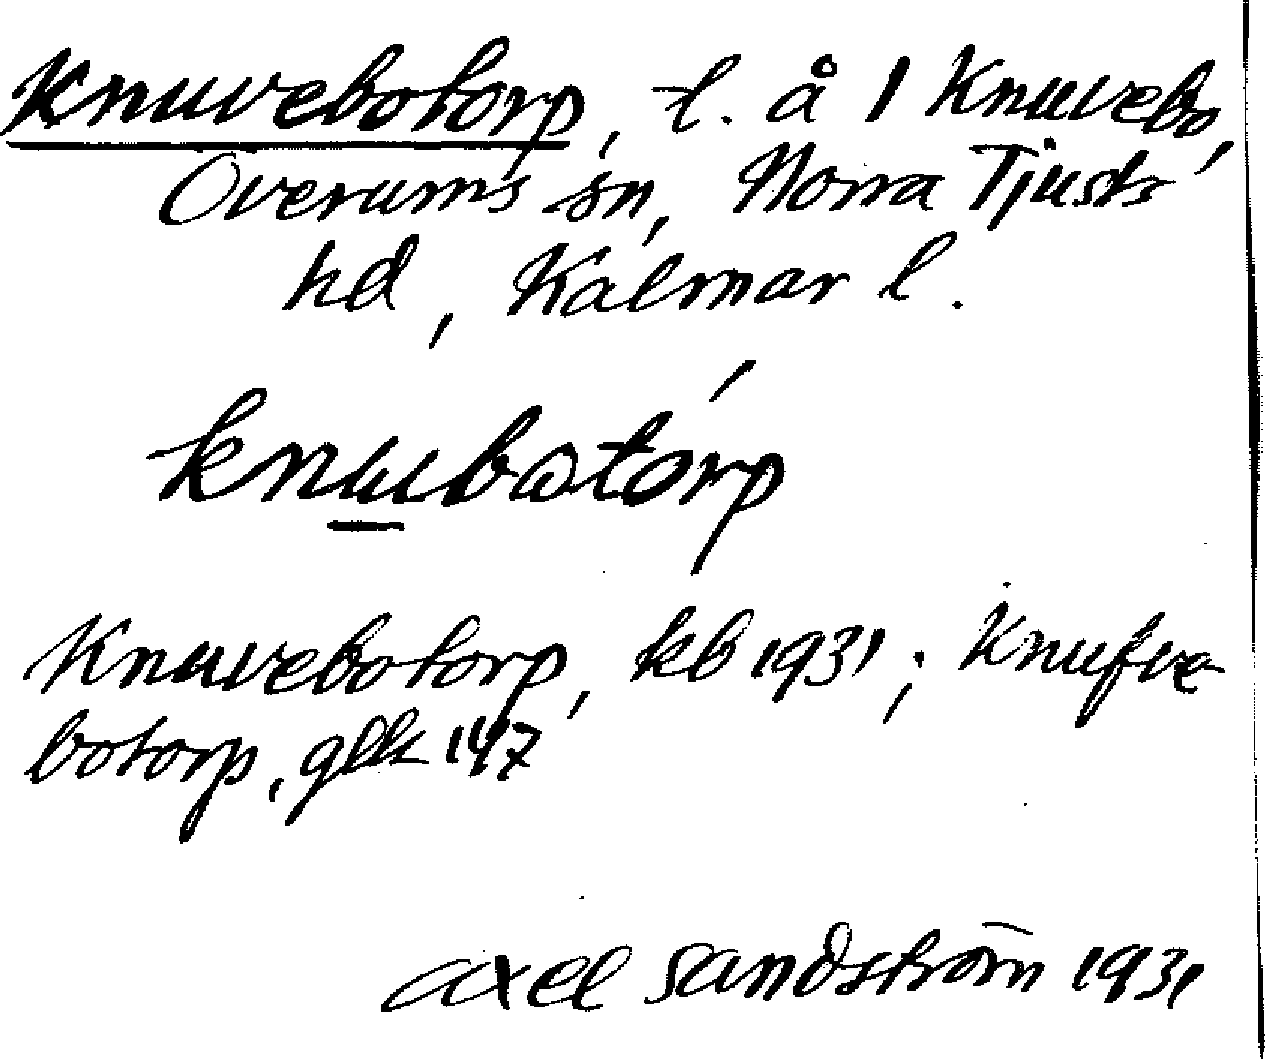 Knuvebotorp, t. å 1 Knuvebo,
Överums sn, Norra Tjusts
hd, Kalmar l.
knubatórp
Knuvebotorp, kb 1931; Knufve-
botorp, gllk 147
Axel Sandström 1931